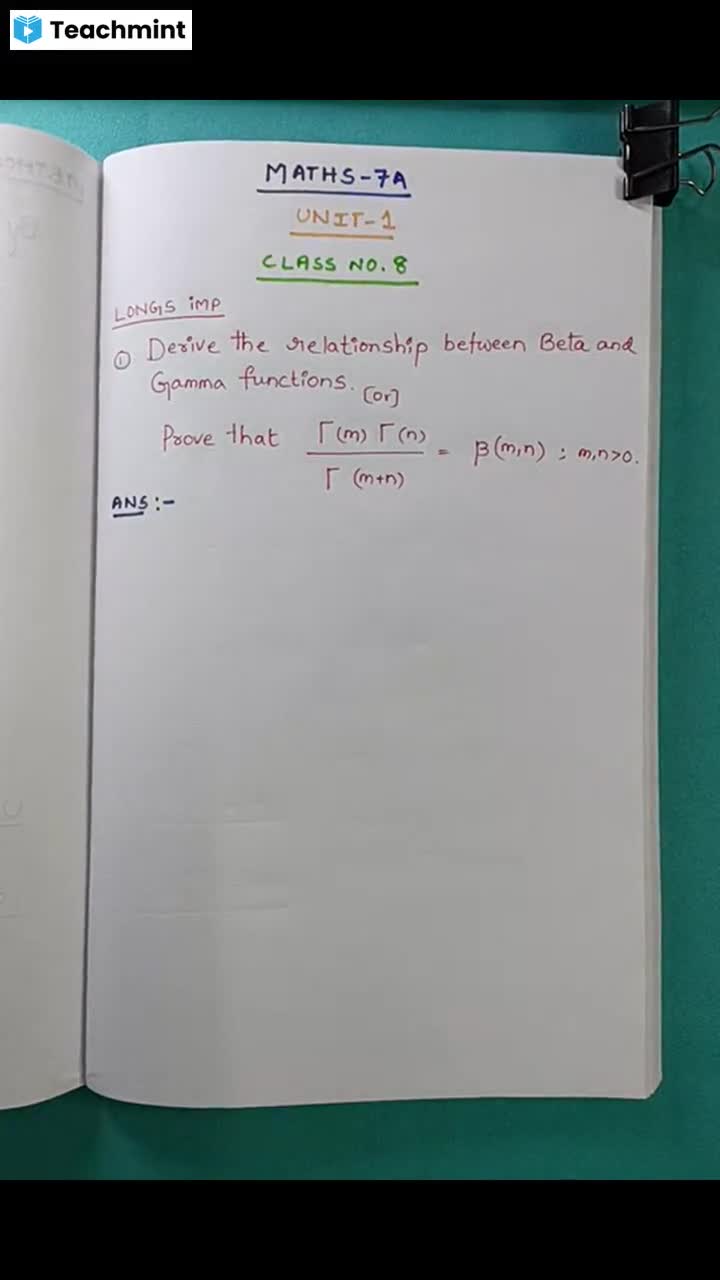 Teachmint
MATHS-7A
UNIT-1
CLASS NO. 8
LONGS IMP
① Derive the relationship between Beta and
Gamma functions. [or]
Prove that Γ(m) Γ(n) / Γ(m+n) = β(m,n) ; m,n>0.
ANS :-